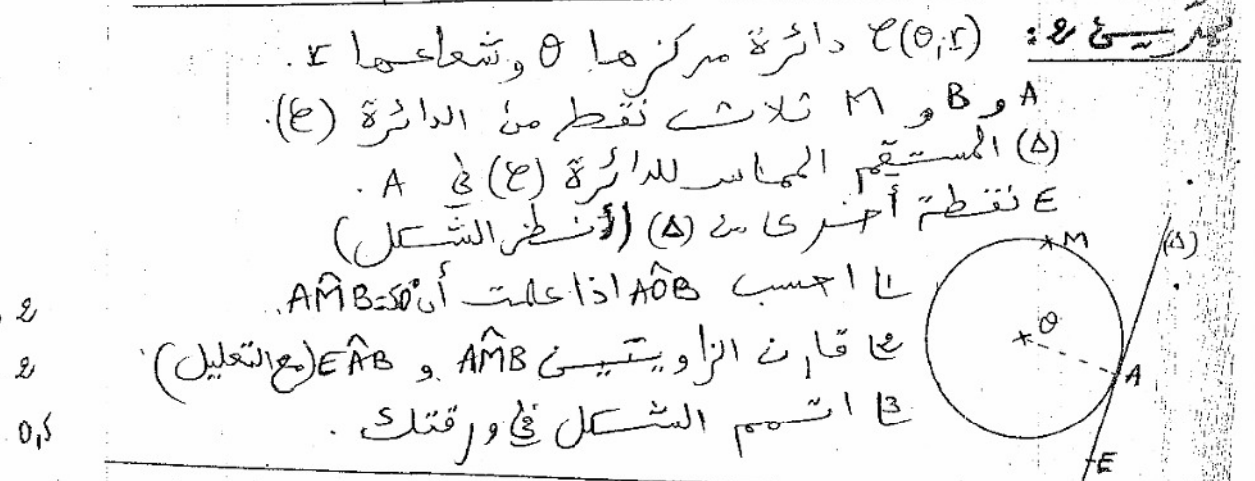 تمرين 2: C(O,r) دائرة مركزها O وشعاعها r.
A و B و M ثلاث نقط من الدائرة (C).
(Δ) المستقيم المماس للدائرة (C) في A.
E نقطة أخرى من (Δ) (أنظر الشكل)
1) احسب AÔB اذا علمت أن AM̂B=50°.
2
2) قارن الزاويتين AM̂B و EÂB (مع التعليل)
2
3) اتمم الشكل في ورقتك.
0,5
M
(Δ)
O
A
E